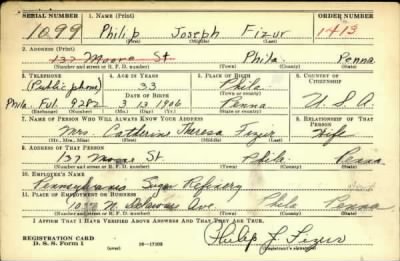 SERIAL NUMBER 1. NAME (Print) ORDER NUMBER
1099 Philip Joseph Fizur 1413
(First) (Middle) (Last)
2. ADDRESS (Print)
137 Moore St Phila. Penna
(Number and street or R. F. D. number) (Town) (County) (State)
3. TELEPHONE 4. AGE IN YEARS 5. PLACE OF BIRTH 6. COUNTRY OF CITIZENSHIP
(Public phone) 33 Phila.
DATE OF BIRTH (Town or county)
Phila. Ful. 9282 3 13 1906 Penna U.S.A
(Exchange) (Number) (Mo.) (Day) (Yr.) (State or country)
7. NAME OF PERSON WHO WILL ALWAYS KNOW YOUR ADDRESS 8. RELATIONSHIP OF THAT PERSON
Mrs. Catherine Theresa Fizur Wife
(Mr., Mrs., Miss) (First) (Middle) (Last)
9. ADDRESS OF THAT PERSON
137 Moore St. Phila. Penna
(Number and street or R. F. D. number) (Town) (County) (State)
10. EMPLOYER'S NAME
Pennsylvania Sugar Refinery
11. PLACE OF EMPLOYMENT OR BUSINESS
N. Delaware Ave Phila Penna
(Number and street or R. F. D. number) (Town) (County) (State)
I AFFIRM THAT I HAVE VERIFIED ABOVE ANSWERS AND THAT THEY ARE TRUE.
REGISTRATION CARD
D. S. S. Form 1 16—17105
Philip J Fizur
(Registrant's signature)